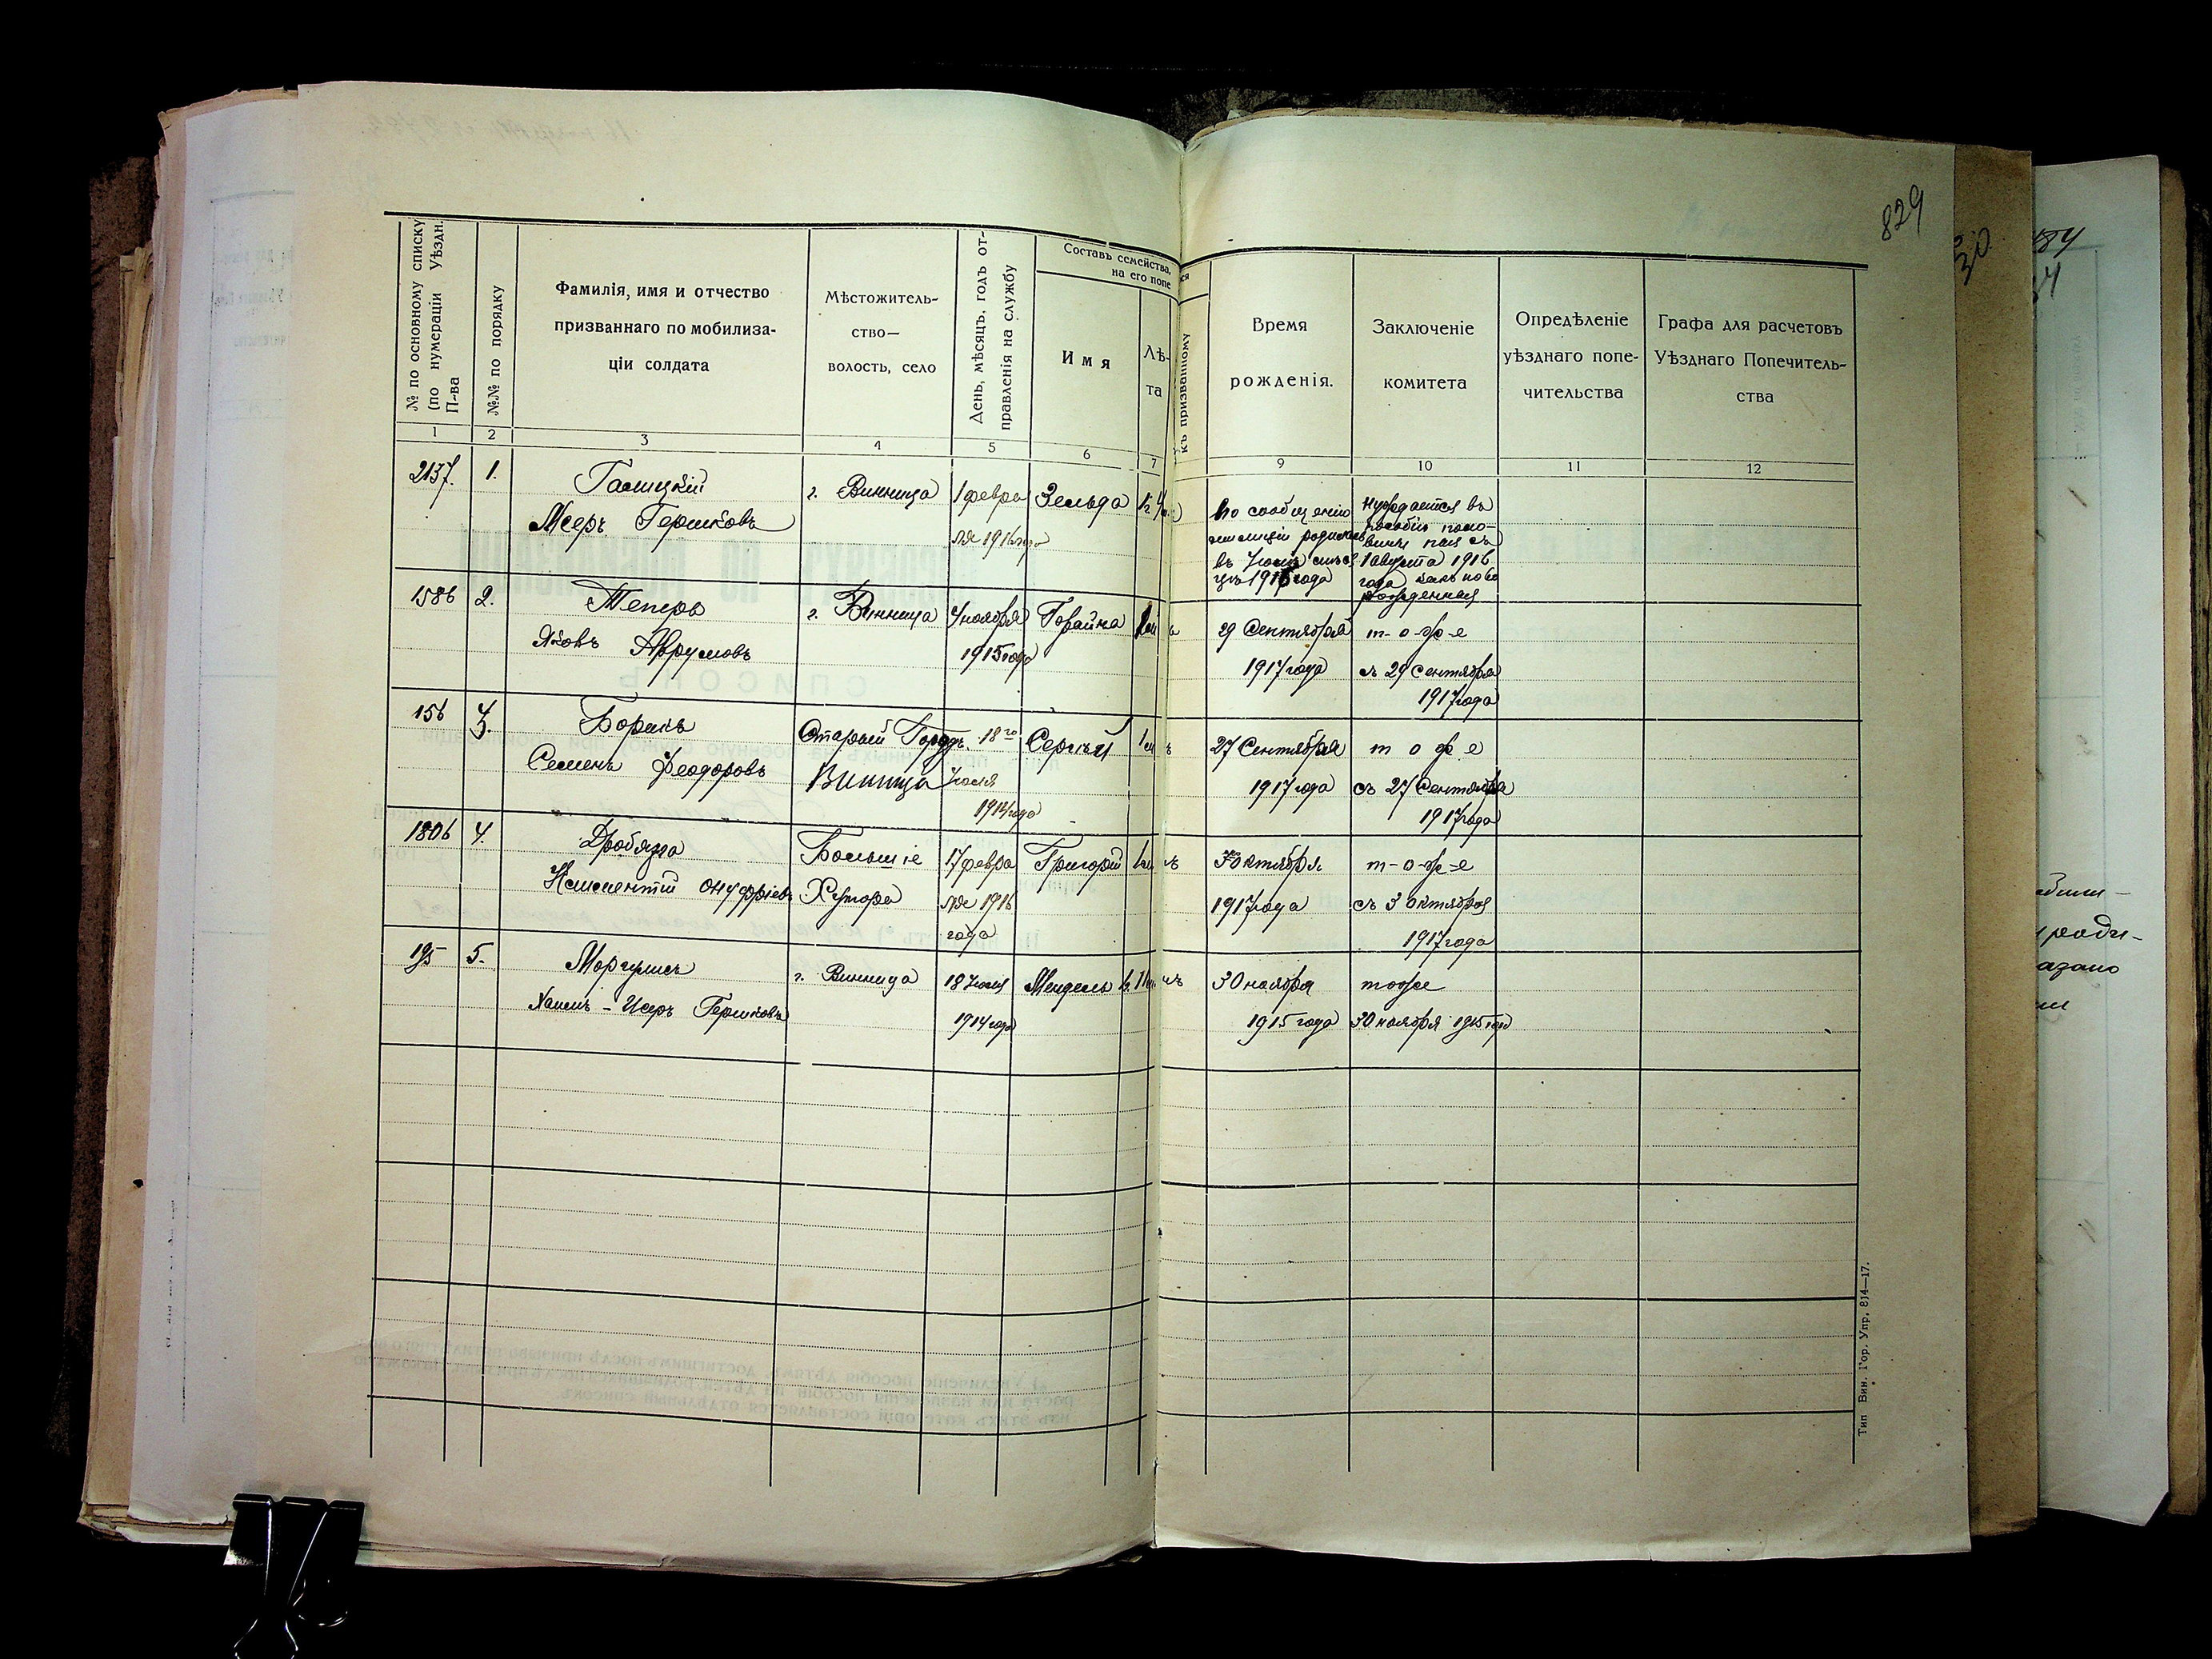 829
№ по основному списку
(по нумераціи Уѣздн.
П-ва
№№ по порядку
Фамилія, имя и отчество
призваннаго по мобилиза-
ціи солдата
Мѣстожитель-
ство—
волость, село
День, мѣсяцъ, годъ от-
правленія на службу
Составъ семейства,
на его попе
Имя
Лѣ-
та
ся
къ призванному
Время
рожденія.
Заключеніе
комитета
Опредѣленіе
уѣзднаго попе-
чительства
Графа для расчетовъ
Уѣзднаго Попечитель-
ства
1 2 3 4 5 6 7 9 10 11 12
2137. 1. Галицкій
Мееръ Гершковъ
г. Винница
1 февра
ля 1916 года
Зельда
По сообщенію
милиціи родилась
въ Іюнѣ мѣся
цѣ 1916 года
Нуждается въ
пособіи поло-
вины пая съ
1 августа 1916
года какъ ново
рожденная
1586 2. Теперъ
Яковъ Аврумовъ
г. Винница
4 ноября
1915 года
29 Сентября
1917 года
т-о-ж-е
съ 29 Сентября
1917 года
156 3. Боракъ
Семенъ Феодоровъ
Старый Городъ
Винница
18го
Іюля
1914 года
Сергѣй
27 Сентября
1917 года
т о ж е
съ 27 Сентября
1917 года
1806 4. Дробяза
Онуфріевъ
Большіе
Хутора
17 февра
ля 1916
года
Григорій
3 Октября
1917 года
т-о-ж-е
съ 3 Октября
1917 года
195 5. Моргулисъ
Хаимъ-Исеръ Гершковъ
г. Винница
18 Іюля
1914 года
Мендель
30 ноября
1915 года
тоже
30 ноября 1915 года
Тип Вин. Гор. Упр. 814—17.
30
484